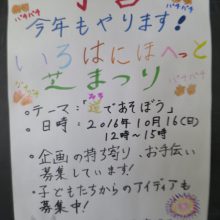 予告
パチパチ パチパチ
今年もやります!
いろはにほへっと
芝まつり
・テーマ:「道であそぼう」
みち
・日時:2016年10月16(日)
12時〜15時
・企画の持ち寄り、お手伝い
募集しています!
・子どもたちからのアイディアも
募集中!